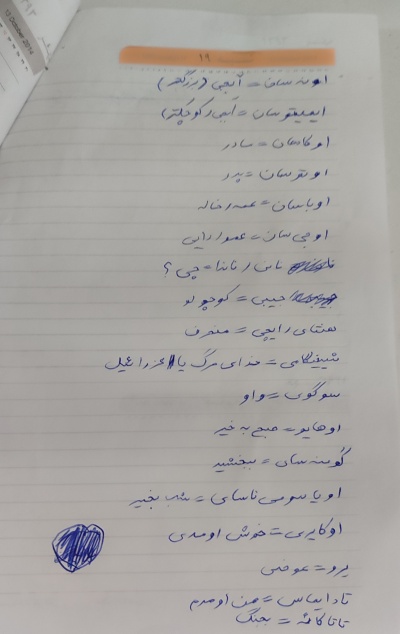 13 October 2014
شنبه ۱۹
اونه سان = آبجی (بزرگتر)
ایمیتو سان = آبجی (کوچکتر)
اوکاسان = مادر
اوتو سان = پدر
اوباسان = عمه / خاله
اوجی سان = عمو / دایی
نان / ناندا = چی؟
چیبی = کوچولو
هنتای / ایچی = منحرف
شینیگامی = خدای مرگ یا عزرائیل
سوگوی = واو
اوهایو = صبح به خیر
گومنه سان = ببخشید
اویاسومی ناسای = شب بخیر
اوکایری = خوش اومدی
یرو = عوضی
تادایماس = من اومدم
تاتاکائه = بجنگ